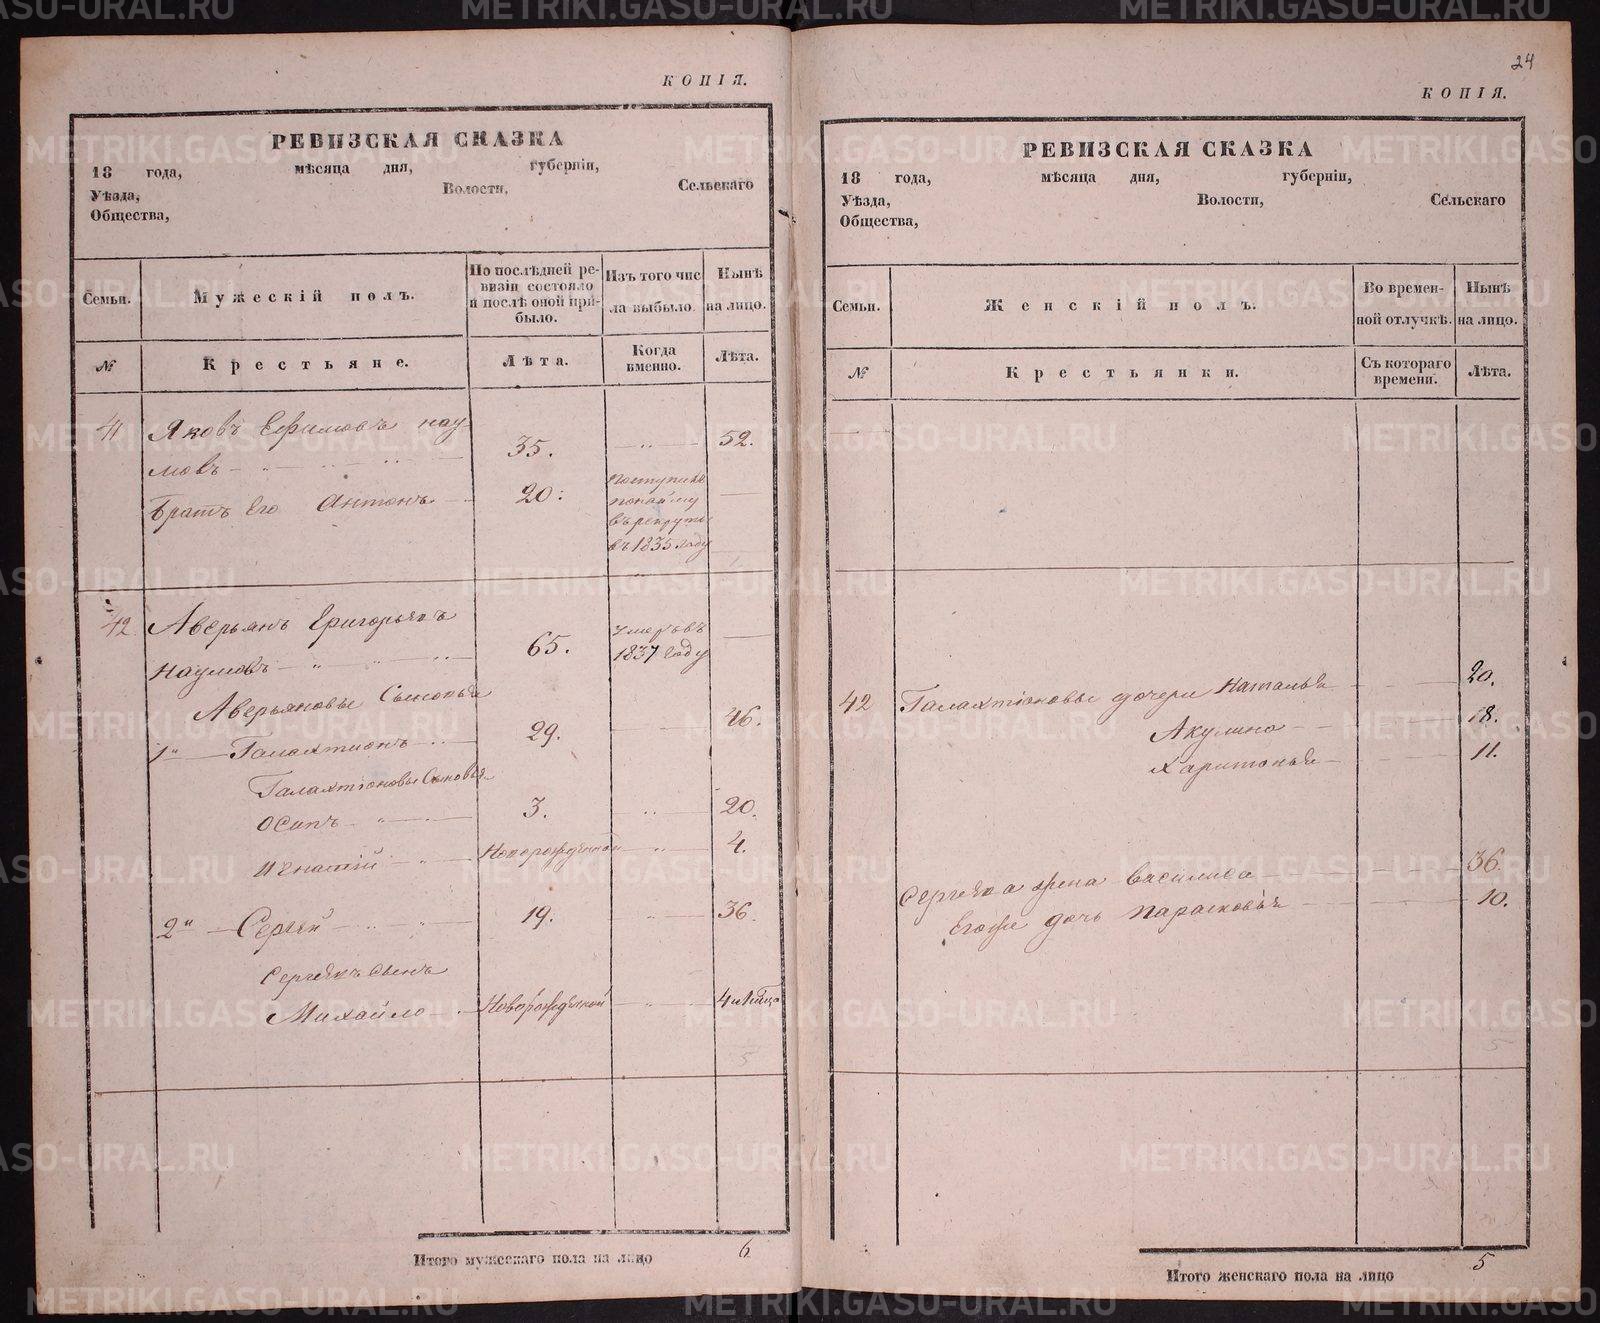 КОПІЯ.
РЕВИЗСКАЯ СКАЗКА
18 года, мѣсяца дня, губерніи,
Уѣзда, Волости, Сельскаго
Общества,
Семьи. Мужескій полъ. По послѣдней ревизіи состояло и послѣ оной прибыло. Изъ того числа выбыло. Нынѣ на лицо.
№ Крестьяне. Лѣта. Когда именно. Лѣта.
41 Яковъ Ефимовъ Нау-
мовъ 35. 52.
Братъ Его Антонъ 20. Поступилъ
понайму
въ рекруты
въ 1835 году
42. Аверьянъ Григорьевъ
Наумовъ 65. Умеръ въ
1837 году
Аверьяновы Сыновья
1й Галахтионъ 29. 46.
Галахтіоновы Сыновья
Осипъ 3. 20.
Игнатій Новорожденной 4.
2й Сергѣй 19. 36.
Сергѣевъ Сынъ
Михайло Новорожденной
5
Итого мужескаго пола на лицо 6
24
КОПІЯ.
РЕВИЗСКАЯ СКАЗКА
18 года, мѣсяца дня, губерніи,
Уѣзда, Волости, Сельскаго
Общества,
Семьи. Женскій полъ. Во временной отлучкѣ. Нынѣ на лицо.
№ Крестьянки. Съ котораго времени. Лѣта.
42 Галахтіоновы дочери Наталья 20.
Акулина 18.
Харитонья 11.
Сергѣева жена Василиса 36.
Егоже дочь Парасковья 10.
5
Итого женскаго пола на лицо 5
METRIKI.GASO-URAL.RU